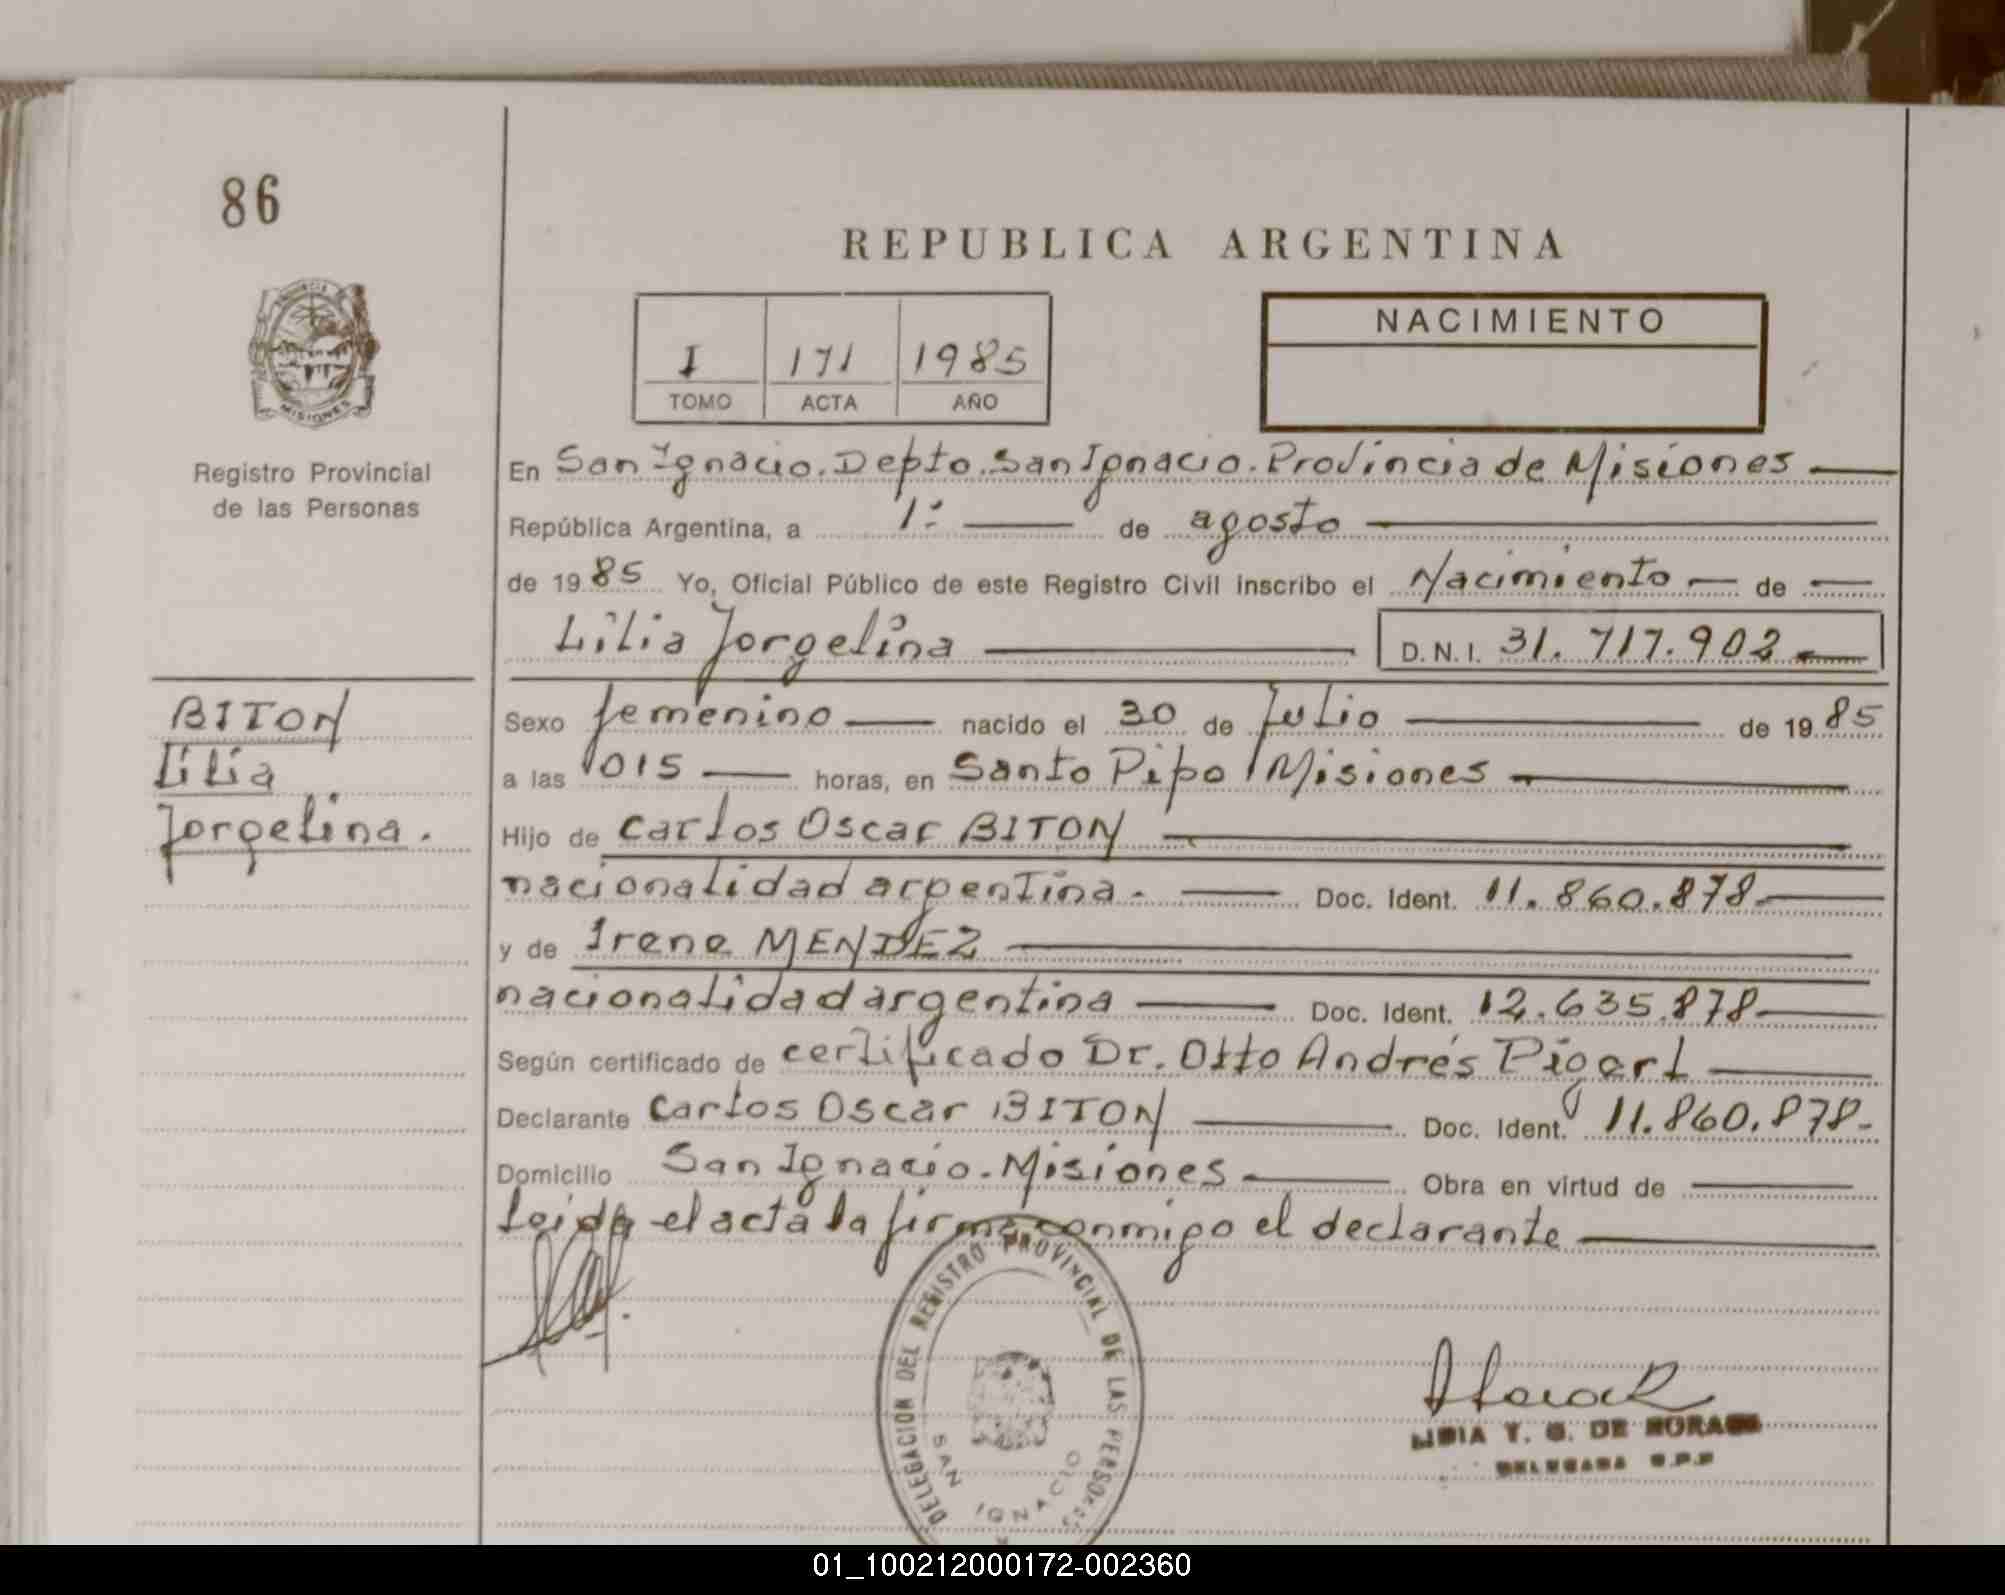 86
REPUBLICA ARGENTINA
PROVINCIA DE
MISIONES
Registro Provincial
de las Personas
I 171 1985
TOMO ACTA AÑO
NACIMIENTO
En San Ignacio. Depto. San Ignacio. Provincia de Misiones
República Argentina, a 1º de agosto
de 1985 Yo, Oficial Público de este Registro Civil inscribo el Nacimiento de
Lilia Jorgelina D.N.I. 31.717.902
BITON
Lilia
Jorgelina.
Sexo femenino nacido el 30 de Julio de 1985
a las 1015 horas, en Santo Pipo Misiones
Hijo de Carlos Oscar BITON
nacionalidad argentina. Doc. Ident. 11.860.878
y de Irene MENDEZ
nacionalidad argentina Doc. Ident. 12.635.878
Según certificado de certificado Dr. Otto Andrés
Declarante Carlos Oscar BITON Doc. Ident. 11.860.878
Domicilio San Ignacio. Misiones Obra en virtud de
Leida el acta la firma conmigo el declarante
DELEGACION DEL REGISTRO PROVINCIAL DE LAS PERSONAS
SAN IGNACIO
DE
01_100212000172-002360